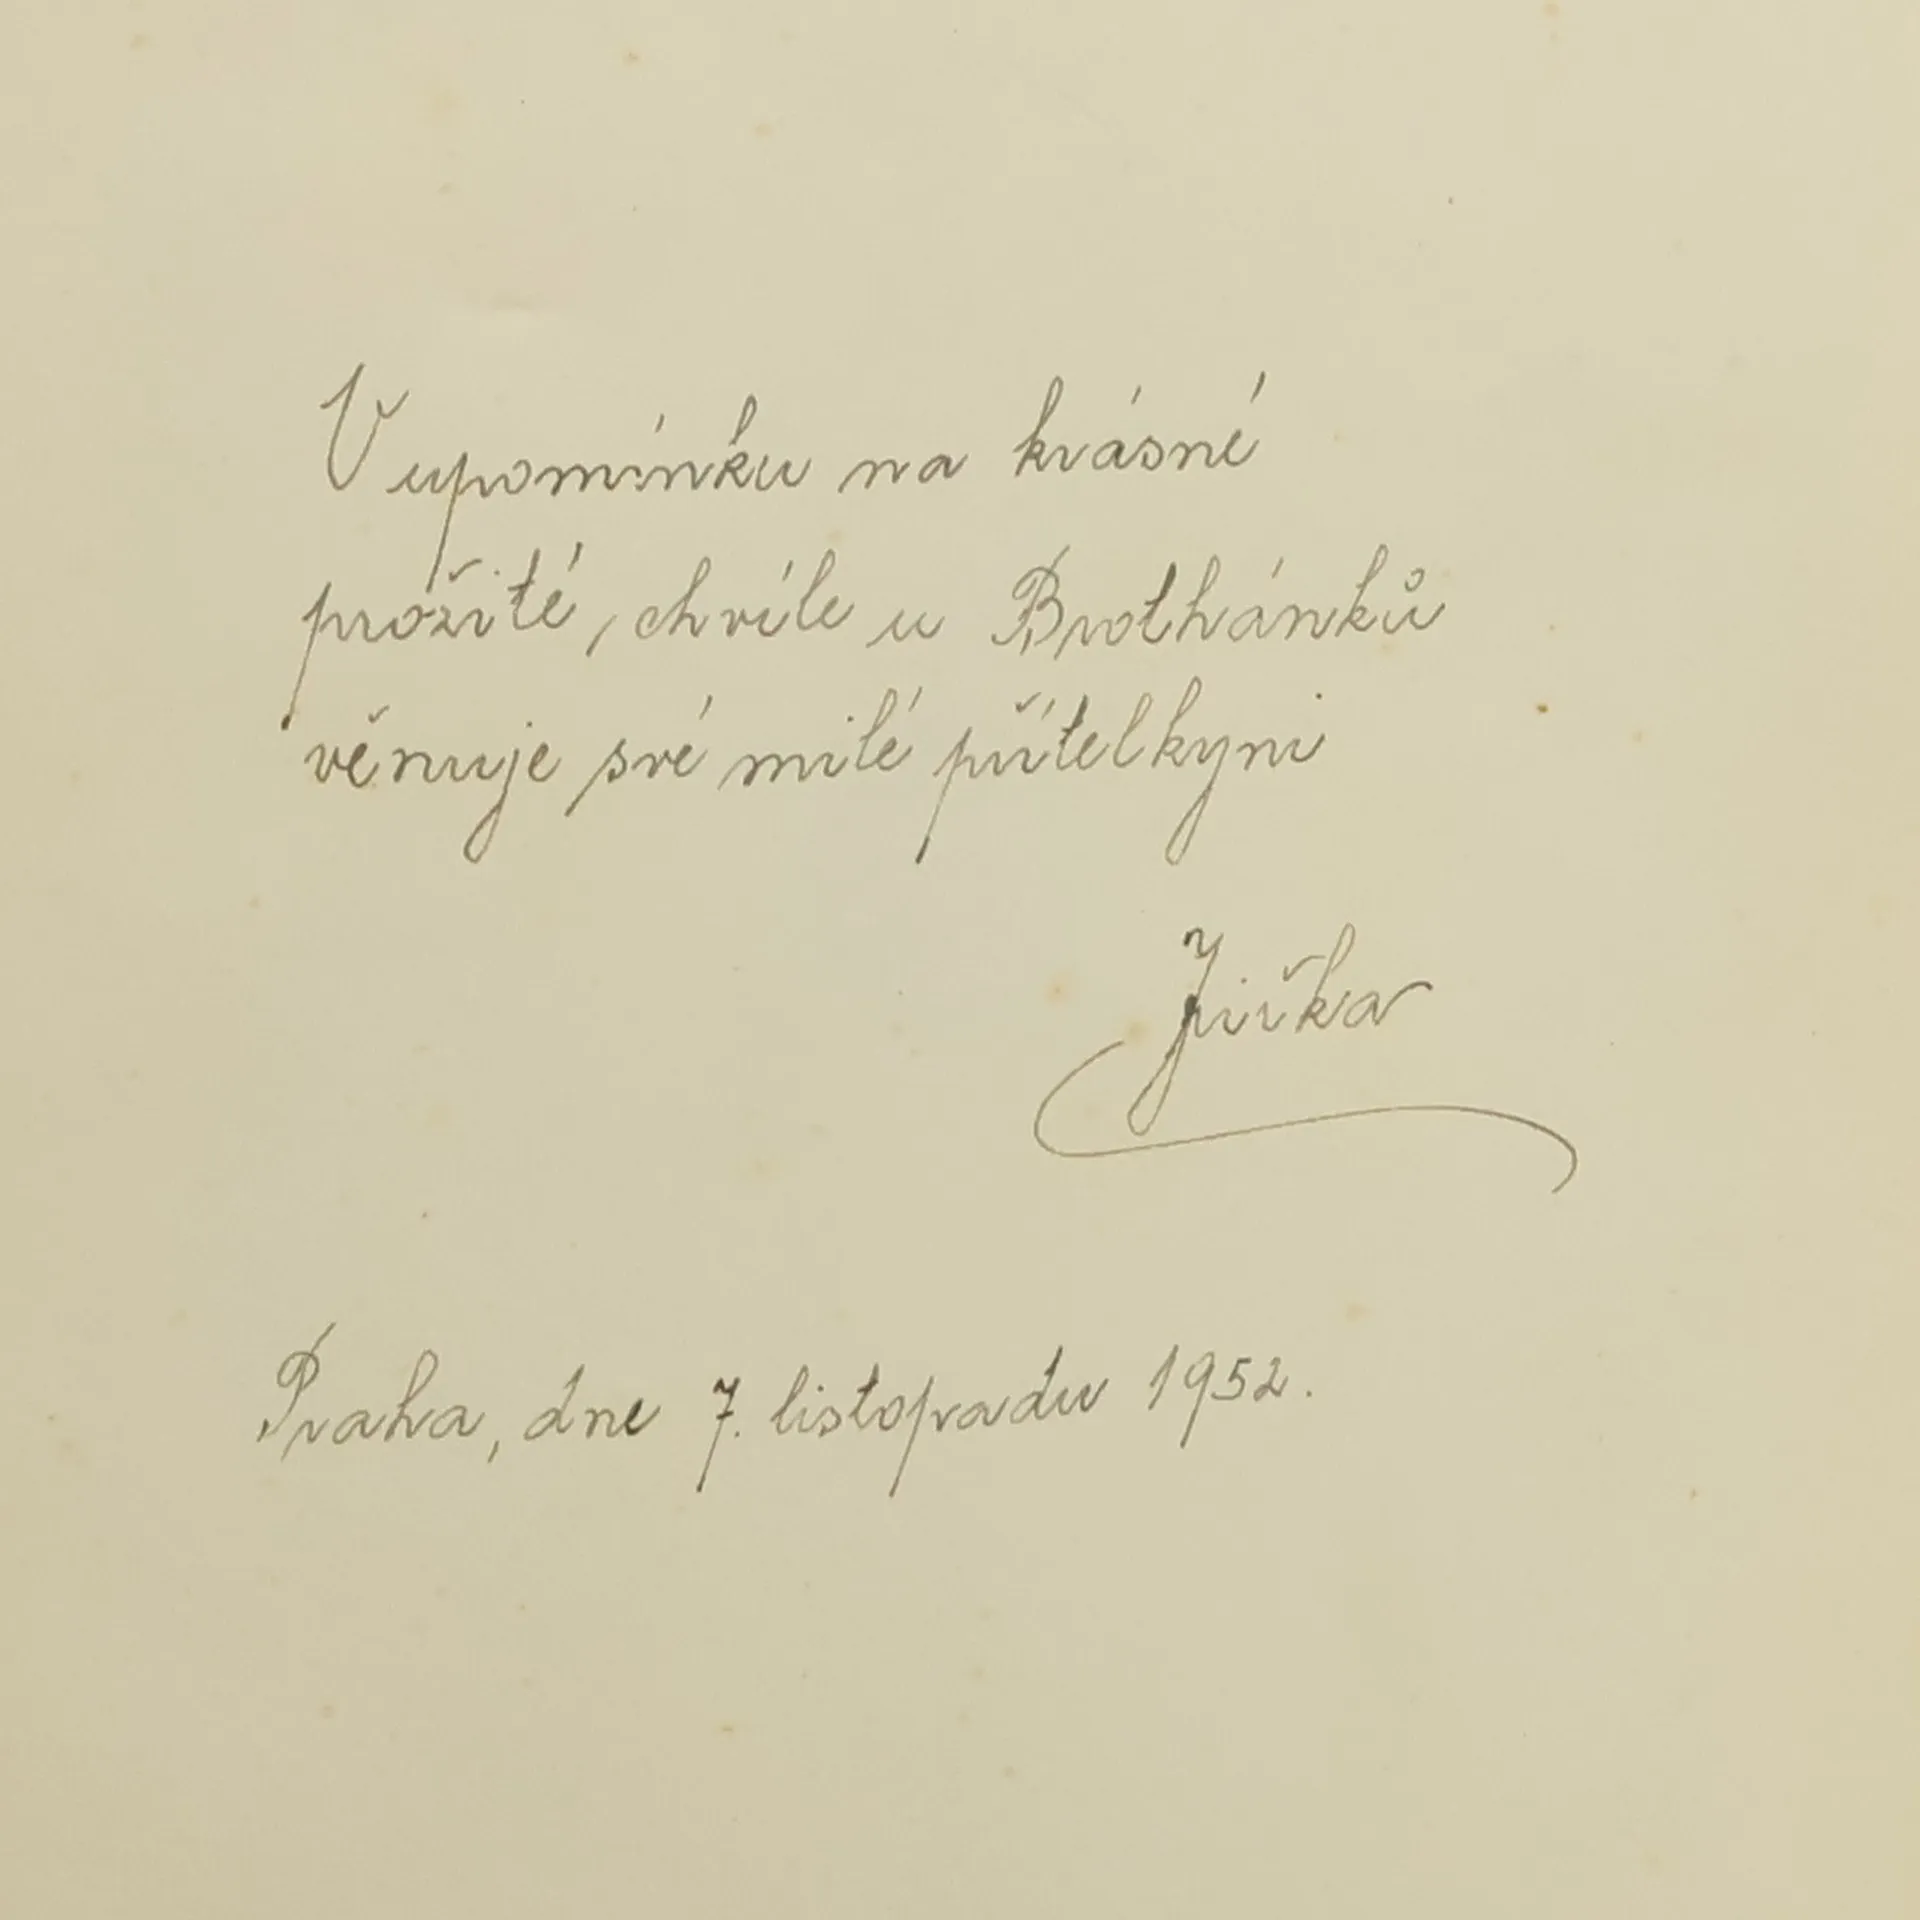 V upomínku na krásné
prožité, chvíle u Brothánků
věnuje své milé přítelkyni
Jiřka
Praha, dne 7. listopadu 1952.